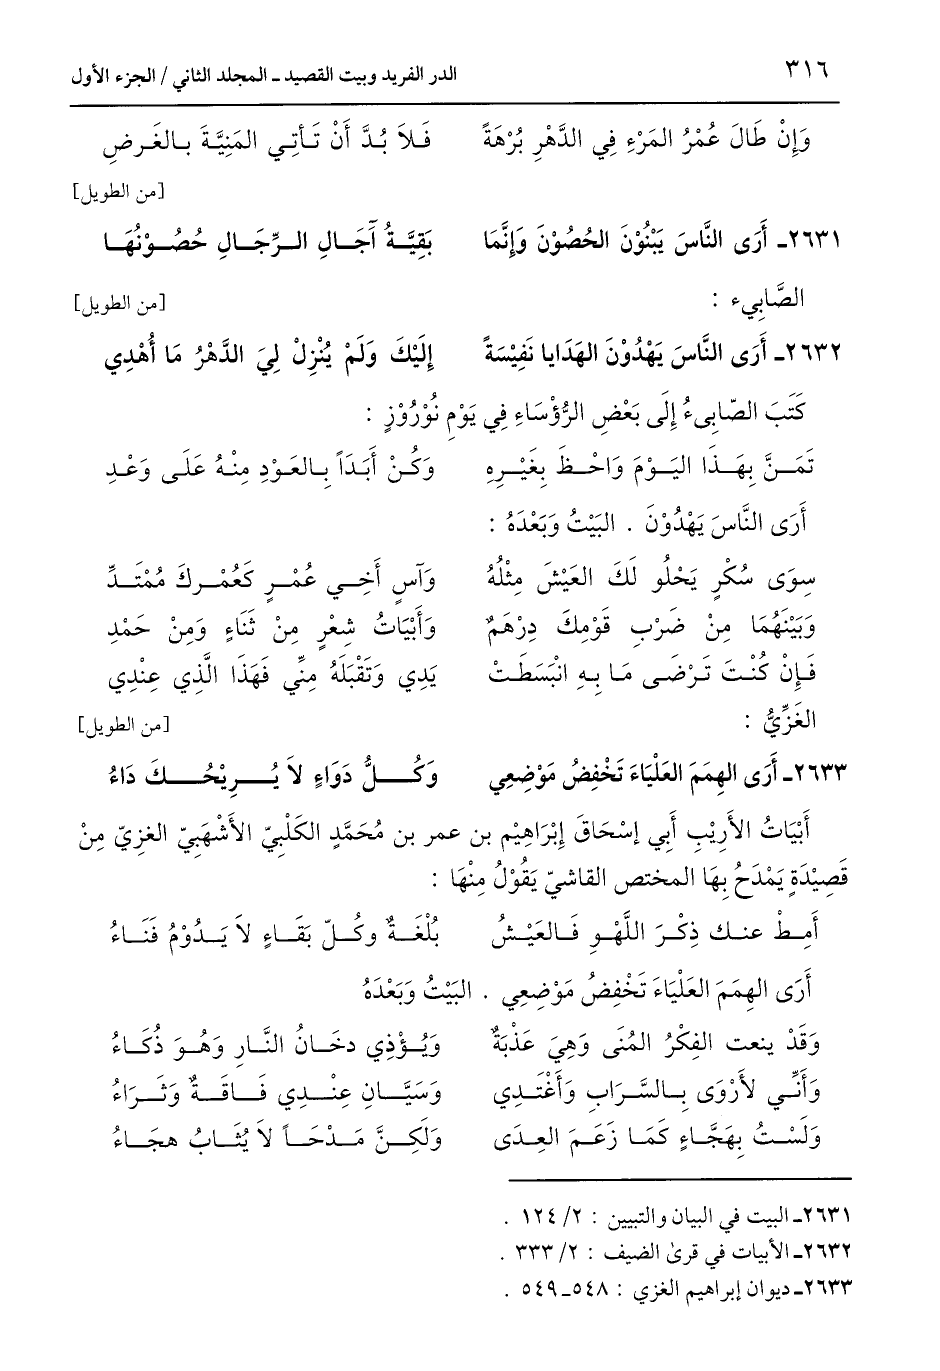 ٣١٦ الدر الفريد وبيت القصيد ـ المجلد الثاني / الجزء الأول
وَإِنْ طَالَ عُمْرُ المَرْءِ فِي الدَّهْرِ بُرْهَةً فَلاَ بُدَّ أَنْ تَـأتِـي المَنِيَّةَ بـالغَـرضِ
[من الطويل]
٢٦٣١ـ أَرَى النَّاسَ يَبْنُوْنَ الحُصُوْنَ وَإِنَّمَا بَقِيَّـةُ آجَـالِ الـرِّجَـالِ حُصُـوْنُهَـا
الصَّابِيء : [من الطويل]
٢٦٣٢ـ أَرَى النَّاسَ يَهْدُوْنَ الهَدَايا نَفِيْسَةً إِلَيْكَ وَلَمْ يُنْزِلْ لِيَ الدَّهْرُ مَا أُهْدِي
كَتَبَ الصّابىءُ إِلَى بَعْضِ الرُّؤْسَاءِ فِي يَوْمِ نُوْرُوْزٍ :
تَمَـنَّ بِهَـذَا اليَـوْمَ وَاحْـظَ بِغَيْـرِهِ وَكُـنْ أَبَـدَاً بِـالعَـوْدِ مِنْـهُ عَلَـى وَعْـدِ
أَرَى النَّاسَ يَهْدُوْنَ . البَيْتُ وَبَعْدَهُ :
سِوَى سُكْرٍ يَحْلُو لَكَ العَيْشَ مِثْلُهُ وَآسٍ أَخِـي عُمْـرٍ كَعُمْـركَ مُمْتَـدِّ
وَبَيْنَهُمَا مِنْ ضَرْبِ قَوْمِكَ دِرْهَمٌ وَأَبْيَاتُ شِعْرٍ مِنْ ثَنَاءٍ وَمِنْ حَمْدِ
فَـإِنْ كُنْـتَ تَـرْضَـى مَـا بِـهِ انْبَسَطَـتْ يَدِي وَتَقْبَلَهُ مِنِّي فَهَذَا الَّذِي عِنْدِي
الغَزِّيُّ : [من الطويل]
٢٦٣٣ـ أَرَى الهِمَمَ العَلْيَاءَ تَخْفِضُ مَوْضِعِي وَكُـلُّ دَوَاءٍ لاَ يُـرِيْحُـكَ دَاءُ
أَبْيَاتُ الأَرِيْبِ أَبِي إسْحَاقَ إِبْرَاهِيْم بن عمر بن مُحَمَّدٍ الكَلْبِيّ الأَشْهَبِيّ الغزيّ مِنْ
قَصِيْدَةٍ يَمْدَحُ بِهَا المختص القاشيّ يَقُوْلُ مِنْهَا :
أَمِـطْ عنـك ذِكْـرَ اللَّهْـوِ فَـالعَيْـشُ بُلْغَـةٌ وكُـلّ بَقَـاءٍ لاَ يَـدُوْمُ فَنَـاءُ
أَرَى الهِمَمَ العَلْيَاءَ تَخْفِضُ مَوْضِعِي . البَيْتُ وَبَعْدَهُ
وَقَدْ ينعت الفِكْرُ المُنَى وَهِيَ عَذْبَةٌ وَيُـؤْذِي دخَـانُ النَّـارِ وَهُـوَ ذُكَـاءُ
وَأَنِّـي لأَرْوَى بِـالسَّـرَابِ وَأَغْتَـدِي وَسَيَّـانِ عِنْـدِي فَـاقَـةٌ وَثَـرَاءُ
وَلَسْـتُ بِهَجَّـاءٍ كَمَـا زَعَـمَ العِـدَى وَلَكِـنَّ مَـدْحَـاً لاَ يُثَـابُ هجَـاءُ
٢٦٣١ـ البيت في البيان والتبيين : ٢/ ١٢٤ .
٢٦٣٢ـ الأبيات في قرىٰ الضيف : ٢/ ٣٣٣ .
٢٦٣٣ـ ديوان إبراهيم الغزي : ٥٤٨ـ٥٤٩ .